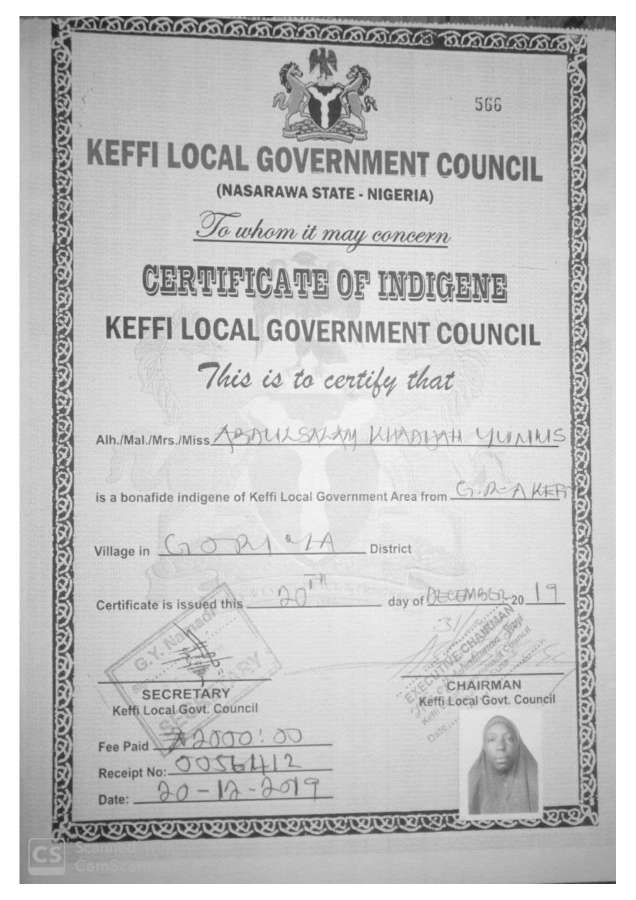 566
KEFFI LOCAL GOVERNMENT COUNCIL
(NASARAWA STATE - NIGERIA)
To whom it may concern
CERTIFICATE OF INDIGENE
KEFFI LOCAL GOVERNMENT COUNCIL
This is to certify that
Alh./Mal./Mrs./Miss ABDULSALAM KHADIJAH YUNUS
is a bonafide indigene of Keffi Local Government Area from G.R.A KEFFI
Village in District
Certificate is issued this 20TH day of DECEMBER 2019
G.Y. 
SECRETARY
EXECUTIVE-CHAIRMAN
SECRETARY CHAIRMAN
Keffi Local Govt. Council Keffi Local Govt. Council
Fee Paid ₦2000:00
Receipt No: 00561412
Date: 20-12-2019
CS